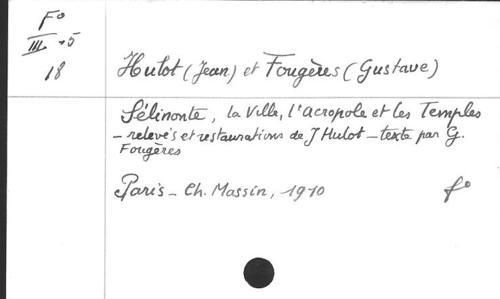 F°
III-5
18
Hulot (Jean) et Fougères (Gustave)
Sélinonte, la Ville, l'acropole et les Temples
- relevés et restaurations de J Hulot - texte par G.
Fougères
Paris - Ch. Massin, 1910 f°